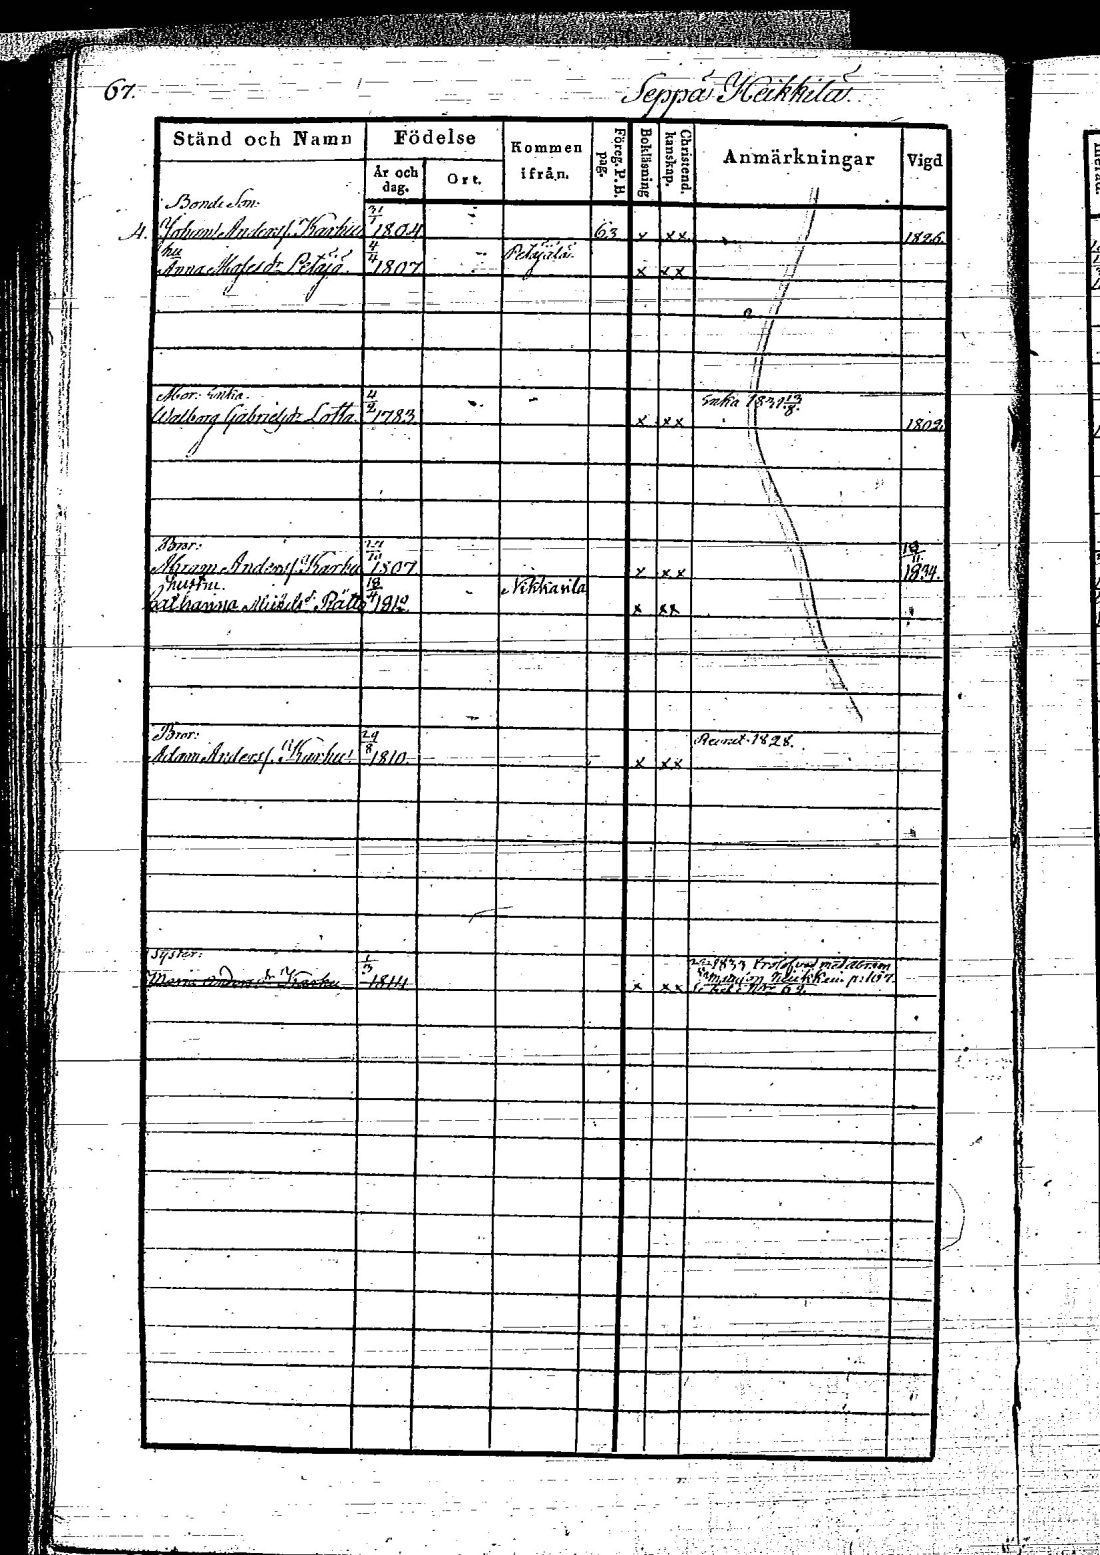 67. Seppä Heikkilä
Ständ och Namn Födelse Kommen ifrån. Föreg. P. B. pag. Bokläsning Christend. kanskap. Anmärkningar Vigd
År och dag. Ort.
Bonde Son:
4. Johan Anderss. Karhu 31/1 1804 63 x xx 1826.
hu
Anna Mosesdr Petäjä 4/4 1807 Petäjälä x xx
Mor: Enka.
Walborg Gabrielsdr Lotta. 4/2 1783 x xx Enka 1831 13/8. 1802.
Bror:
Anderss. Karhu 1807 x xx 1834.
hustru.
Catharina Mickelsd. Rättö 18/4 1812 Nikkarila x xx
Bror:
Adam Anderss. Karhu 29/8 1810 x xx 1828.
Syster:
Maria Andersdr Karhu 1/3 1814 x xx 1833
p: 107
N:o 62.